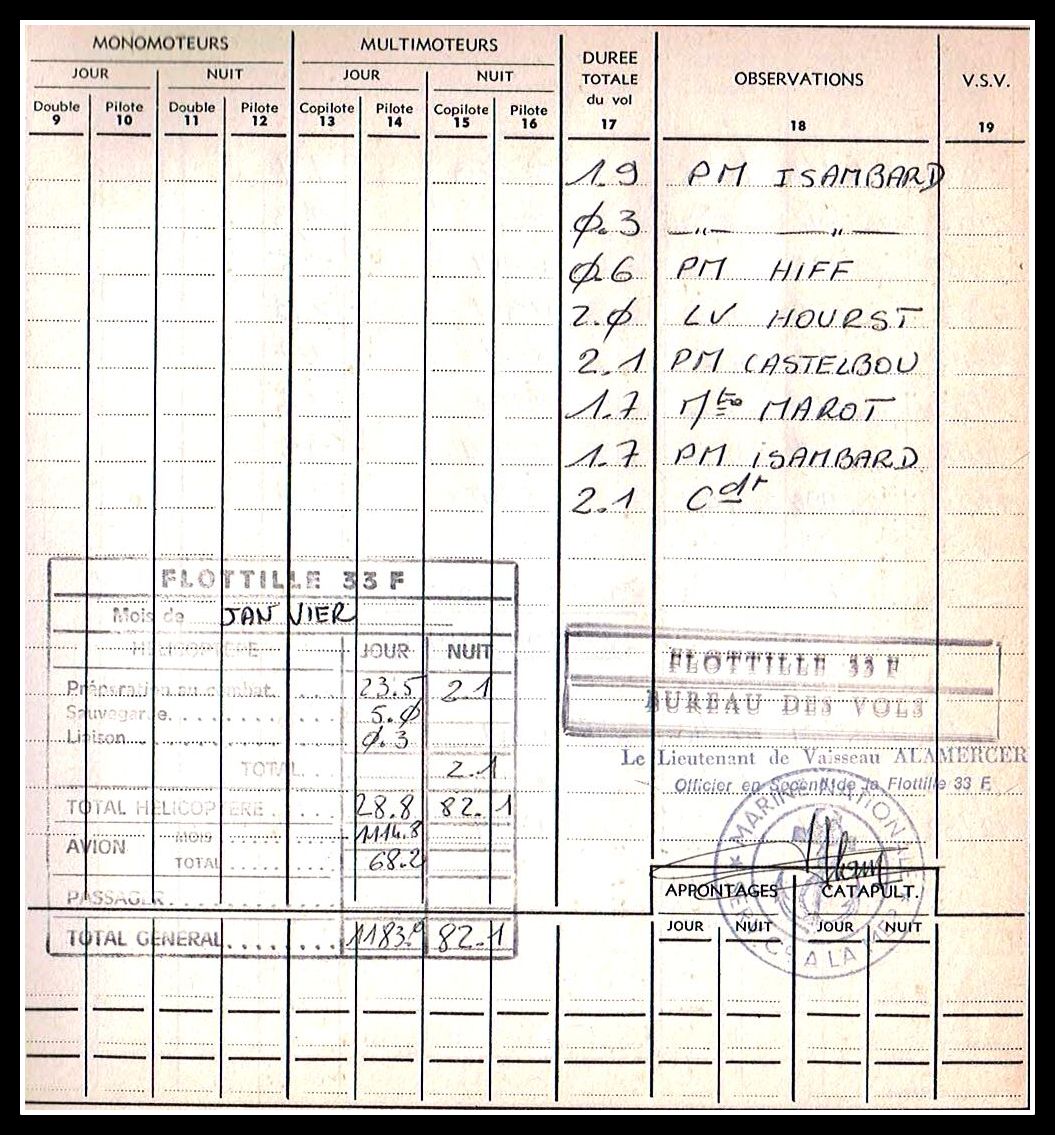 MONOMOTEURS MULTIMOTEURS DUREE TOTALE du vol OBSERVATIONS V.S.V.
JOUR NUIT JOUR NUIT
Double Pilote Double Pilote Copilote Pilote Copilote Pilote
9 10 11 12 13 14 15 16 17 18 19
1.9 PM ISAMBARD
Ø.3 —"— —"—
Ø.6 PM HIFF
2.Ø LV HOURST
2.1 PM CASTELBOU
1.7 Mtre MAROT
1.7 PM iSAMBARD
2.1 Cdt
FLOTTILLE 33 F
Mois de JANVIER
HELICOPTERE JOUR NUIT
Préparation au combat. . . . . 23.5 2.1
Sauvegarde. . . . . . . . . . . . 5.Ø
Liaison. . . . . . . . . . . . Ø.3
TOTAL. . . 2.1
TOTAL HELICOPTERE . . . . . 28.8 82.1
AVION MOIS . . . . . . . 1114.8
TOTAL . . . . . . . 68.2
PASSAGER. . . . . . . . . . . .
TOTAL GENERAL. . . . . . . . 1183.Ø 82.1
FLOTTILLE 33 F
BUREAU DES VOLS
Le Lieutenant de Vaisseau ALAMERCER
Officier en Second de la Flottille 33 F.
MARINE NATIONALE
A LA MER
APPONTAGES CATAPULT.
JOUR NUIT JOUR NUIT